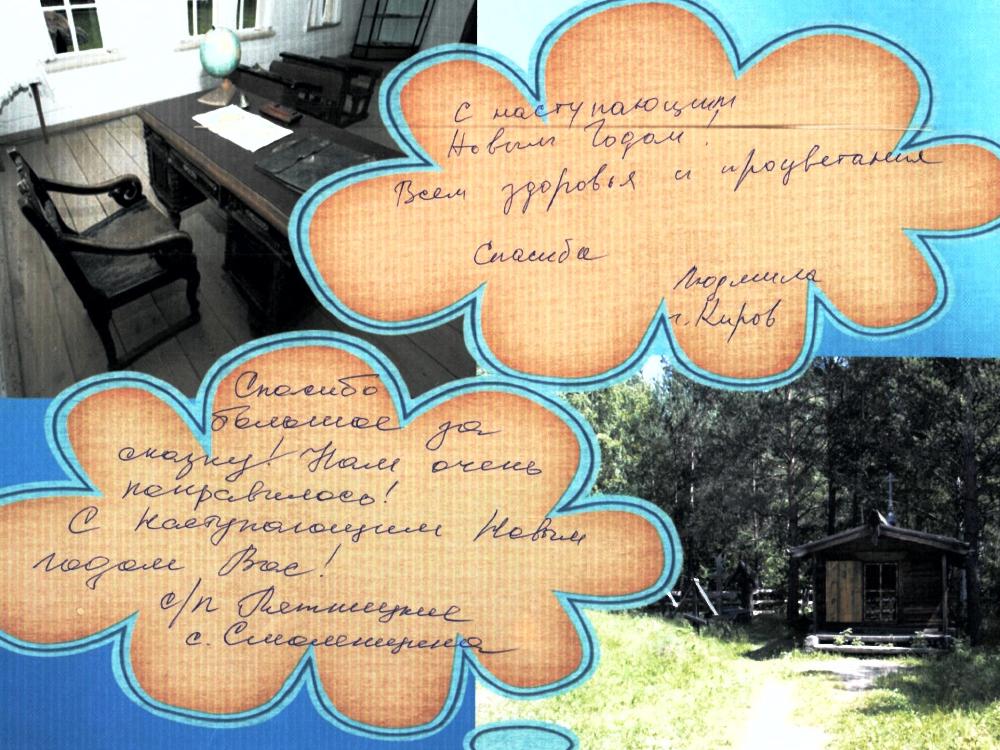 С наступающим
Новым Годом!
Всем здоровья и процветания
Спасибо
Людмила
г. Киров
Спасибо
большое за
сказку! Нам очень
понравилось!
С Наступающим Новым
годом Вас!
с/п
с. Смоленщина